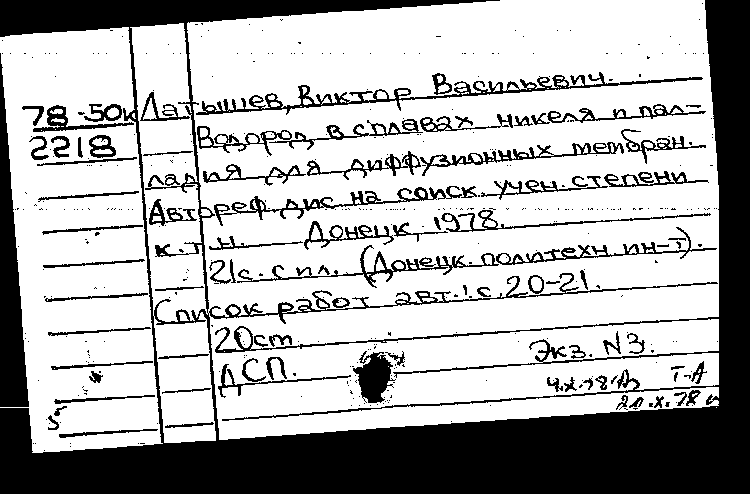 78-50к Латышев, Виктор Васильевич.
2218 Водород в сплавах никеля и пал=
ладия для диффузионных мембран.
Автореф. дис на соиск. учен. степени
к.т.н. Донецк, 1978.
21с. с ил. (Донецк. политехн ин-т).
Список работ авт.: с. 20-21.
20см.
ДСП. Экз. N3.
4.X.78 Т-А
20.X.78